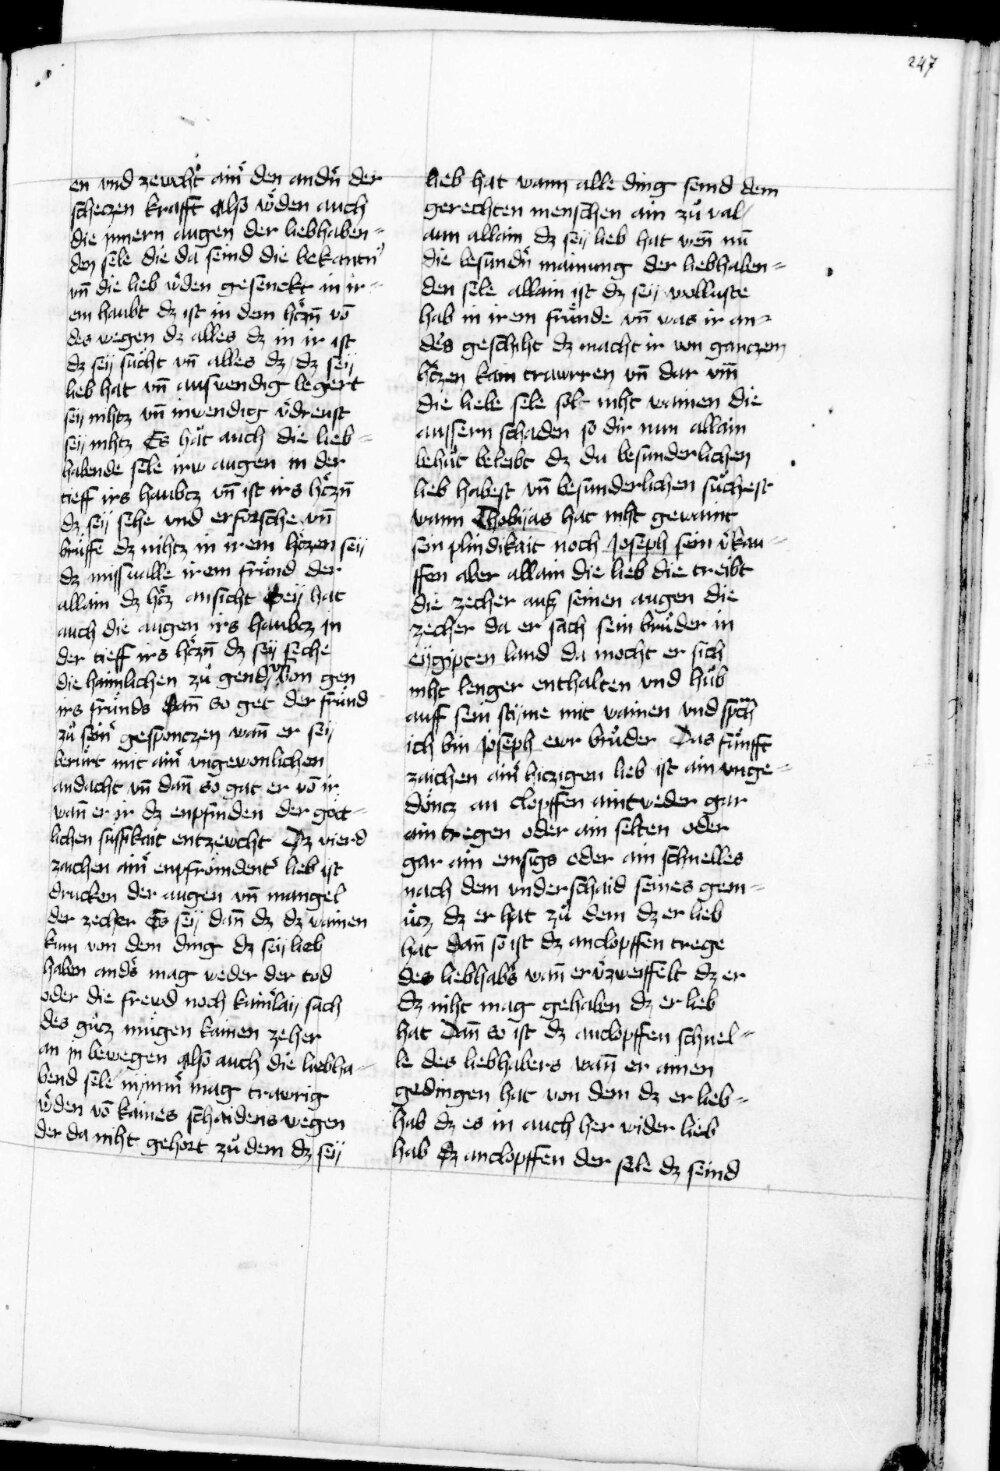 247
en vnd zewcht ainͤ den andñ der
scheczen krafft also wͤden auch
die innern augen der liebhaben=
den sele die da seind die bekantñ
vñ die lieb wͤden gesenckt in ir=
em haubt dz ist in dem hͤczñ võ
des wegen dz alles dz in ir ist
dz seÿ sucht vñ alles dz / dz seÿ
lieb hat vñ auswendig begert
seÿ nihtz vñ inwendigs vͤdreust
seÿ nihtz Es hat auch die lieb=
habende sele irw augen in der
tieff irs haubtz vñ ist irs hͤczñ
dz seÿ sehe vnd erforsche vñ
brüffe dz nihtz in irem hͤczen seÿ
dz missualle irem fründ der
allain dz hͤcz ansicht Seÿ hat
auch die augen irs haubtz in
der tieff irs hͤczñ dz seÿ seche
die haimlichen zů gend / vñ von gen
irs fründs Dañ so get der fründ
zů seinͤ gesponczen wañ er seÿ
berürt mit ainͤ vngewonlichen
andacht vñ dañ so gat er võ ir
wañ er ir dz enpfinden der göt=
lichen süssikait entzewcht Dz vierd
zaichen ainͤ enpfrömdentͤ lieb ist
drucken der augen vñ mangel
der zecher Es seÿ dañ dz dz wainen
kum von dem ding dz seÿ lieb
haben andͤs mag weder der tod
oder die frewd noch kainͤlaÿ sach
des gůcz mügen kainen zeher
an in bewegen also auch die liebha=
bend sele nÿmmͤ mag trawrig
wͤden võ kaines schadens wegen
der da niht gehort zů dem dz seÿ
lieb hat wann alle ding seind dem
gerechten menschen ain zů val /
ann allain dz seÿ lieb hat wen̄ nū
die besundñ mainung der liebhaben=
den sele allain ist dz seÿ wolluste
hab in irem fründe vñ was ir an=
dͤs geschiht dz macht ir von ganczem
hͤczen kain trawrren vñ dar vm̄
die liebe sele solt niht wainen die
aussern schaden so dir nun allain
behůt beleibt dz du besunderlichen
lieb habest vñ besunderlichen süchest
wann Thobÿas hat niht gewaint
sein plindikait noch Joseph sein vͤkau=
ffen aber allain die lieb die treibt
die zecher auß seinen augen die
zecher da er sach sein brüder in
eÿgipten land da mocht er sich
niht lenger enthalten vnd hůb
auff sein stÿme mit wainen vnd sprch
ich bin Joseph ewr brůder Das fünfft
zaichen ainͤ hiczigen lieb ist ain vnge=
döncz an clopffen aintweder gar
ain tregen oder ain selten oder
gar ain emsigs oder ain schnelles
nach dem vnderschaid seines gem=
ücz dz er hat zů dem dz er lieb
hat Dañ so ist dz anclopffen trege
des liebhabͤs wañ er vͤzweiffelt dz er
dz niht mag gehaben dz er lieb
hat Dañ so ist dz anclopffen schnel=
le des liebhabers wañ er ainen
gedingen hat von dem dz er lieb=
hab dz es in auch her wider lieb
hab Dz anclopffen der sele dz seind